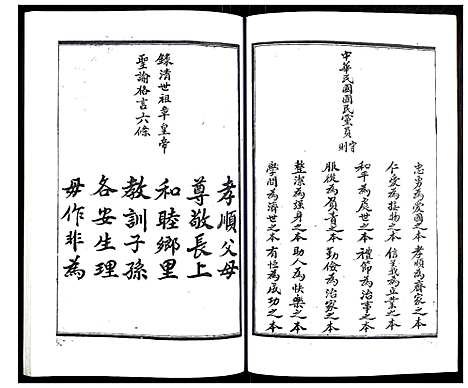 中華民國國民黨員守則
忠勇為愛國之本 孝順為齊家之本
仁愛為接物之本 信義為立業之本
和平為處世之本 禮節為治事之本
服從為負責之本 勤儉為治家之本
整潔為強身之本 助人為快樂之本
學問為濟世之本 有恒為成功之本
錄清世祖章皇帝
聖諭格言六條
孝順父母
尊敬長上
和睦鄉里
教訓子孫
各安生理
毋作非為